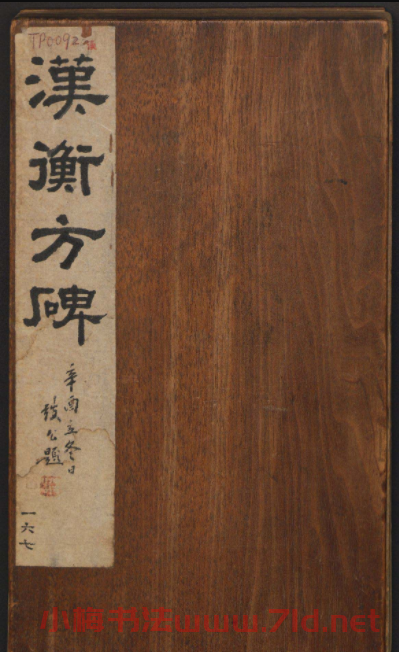 TP0092
漢衡方碑
辛酉立冬日
公題
一六七
小楷书法www.71d.net